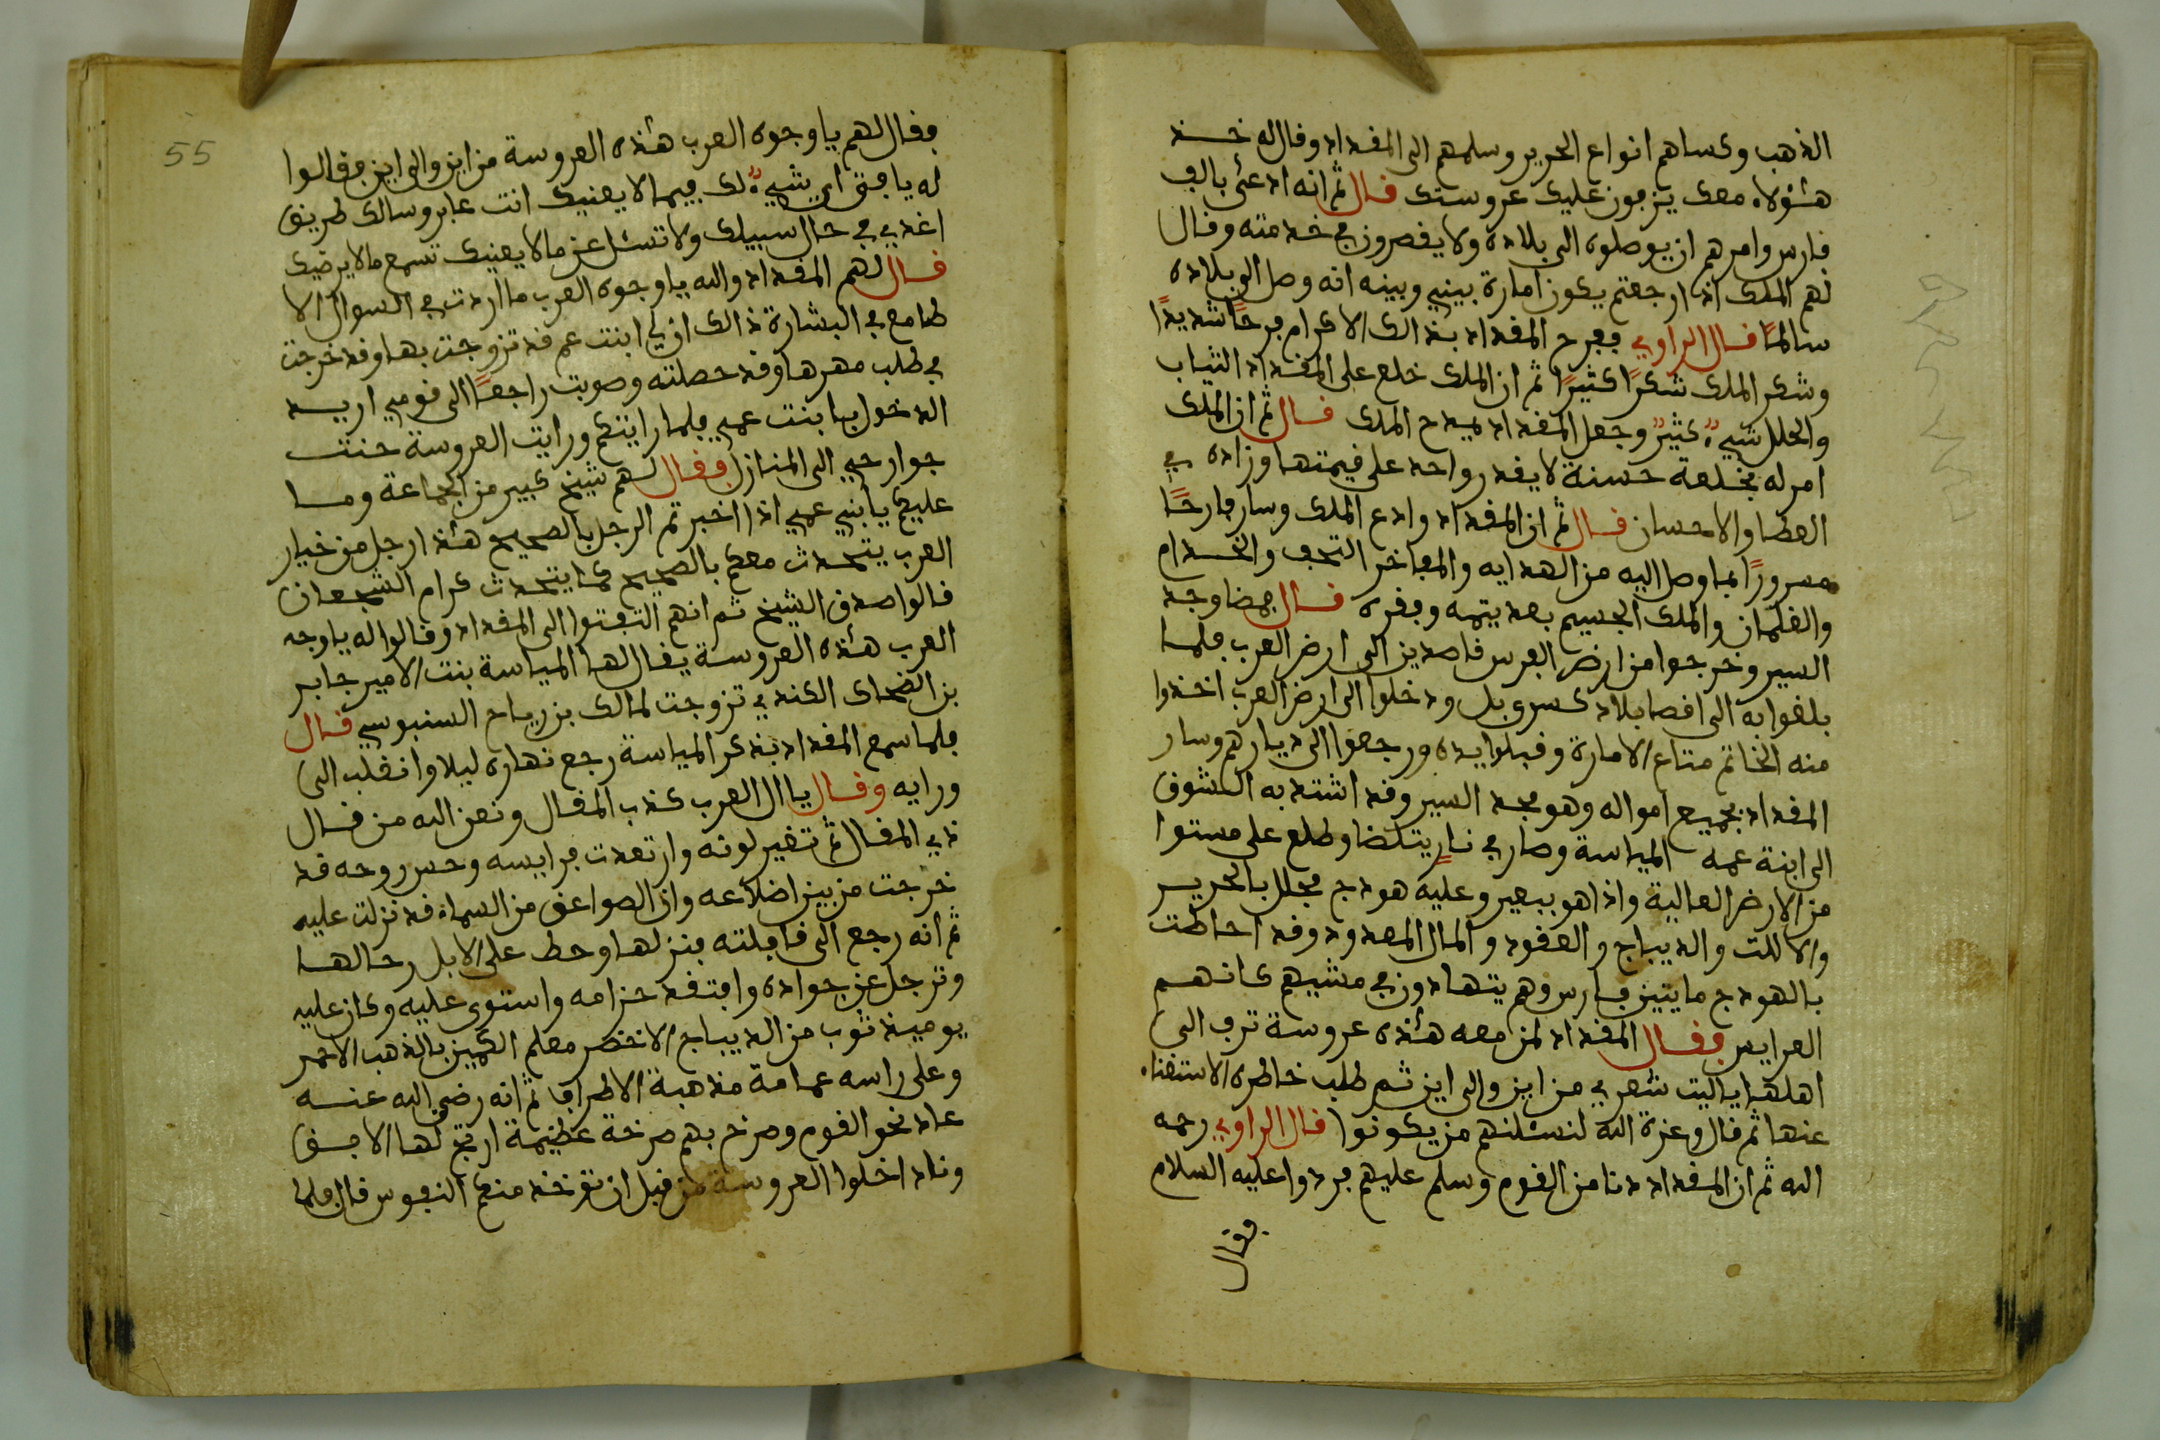 الذهب وكساهم انواع الحرير وسلمهم الى المقداد وقال له خـذ
هـٰؤلاء معك يزفون عليك عروستك قـال ثم انه ادعى بالف
فارس وامرهم ان يوصلوه الى بلاده ولا يقصرون في خدمته وقال
لهم الملك اذا ارجعتم يكون امارة بيني وبينه انه وصل الى بلاده
سالمًا قـال الراوي ففرح المقداد بذالك الاكرام فرحًا شديدًا
وشكر الملك شكرًا كثيرًا ثم ان الملك خلع على المقداد الثياب
والحلل شيءٌ كثيرٌ وجعل المقداد يمدح الملك قـال ثم ان الملك
امر له بخلعة حسنة لا يقدر واحد على قيمتها وزاده في
العطا والاحسان قـال ثم ان المقداد وادع الملك وسار فارحًا
مسرورًا بما وصل اليه من الهدايه والمفاخر التحف والخدام
والغلمان والملك الجسيم بعد يتمه وفقره قـال فمضا وجد
السير وخرجوا من ارض الفرس قاصدين الى ارض العرب فلما
بلغوا به الى اقصا بلاد كسرى بل ودخلوا الى ارض العرب اخذوا
منه الخاتم متاع الامارة وقبلوا يده ورجعوا الى ديارهم وسار
المقداد بجميع امواله وهو مجد السير وقد اشتد به الشوق
الى ابنة عمه المياسة وصار في نارٍ يتلضا وطلع على مستوا
من الارض العالية واذا هو ببعير وعليه هودج مجلل بالحرير
والاللت والديباج والعقود والمال المعدود وقد احاطت
بالهودج مايتين فارس وهم يتهادون في مشيهم كانهم
العرايس فقـال المقداد لمن معه هـٰذه عروسة تزف الى
اهلها يا ليت شعري من اين والى اين ثم طلب خاطره الاستقناء
عنها ثم قال وعزة الله لنسئلنهم من يكونوا قال الراوي رحمه
الله ثم ان المقداد دنا من القوم وسلم عليهم فردوا عليه السلام
فقال
55
فقال لهم يا وجوه العرب هـٰذه العروسة من اين والى اين فقالوا
له يا فتى اي شيءٌ لك فيما لا يعنيك انت عابر وسالك طريق
اغدي في حال سبيلك ولا تسئل عن ما لا يعنيك تسمع ما لا يرضيك
قـال لهم المقداد والله يا وجوه العرب ما اردت في السوال الا
طامع في البشارة ذالك ان لي ابنت عم قد تزوجت بها وقد خرجت
في طلب مهرها وقد حصلته وصوبت راجعًا الى قومي اريـد
الدخول بابنت عمي فلما رايتكم ورايت العروسة حنت
جوارحي الى المنازل فقـال لهم شيخ كبير من الجماعة ومـا
عليكم يا بني عمي اذا اخبرتم الرجل بالصحيح هـٰذا رجل من خيار
العرب يتحدث معكم بالصحيح كما يتحدث كرام الشجعان
قالوا صدق الشيخ ثم انهم التفتوا الى المقداد وقالوا له يا وجه
العرب هـٰذه العروسة يقال لها المياسة بنت الامير جابر
بن الضحاك الكندي تزوجت لمالك بن رياح السنبوسي قـال
فلما سمع المقداد بذكر المياسة رجع نهاره ليلا وانقلب الى
ورايه وقـال يا ال العرب كذب المقال ونعن الله من قـال
ذي المقال ثم تغير لونه وارتعدت فرايسه وحس روحه قد
خرجت من بين اضلاعه وان الصواعق من السماء قد نزلت عليه
ثم انه رجع الى قافلته فنزلها وحط على الابل رحالهـا
وترجل عن جواده وافتقد حزامه واستوى عليه وكان عليه
يوميذ ثوب من الديباج الاخضر معلم الكمين بالذهب الاحمر
وعلى راسه عمامة مذهبة الاطراف ثم انه رضي الله عنـه
عاد نحو القوم وصرخ بهم صرخة عظيمة ارتج لها الافـق
وناد اخلوا العروسة من قبل ان توخذ منكم النفوس قال فلما